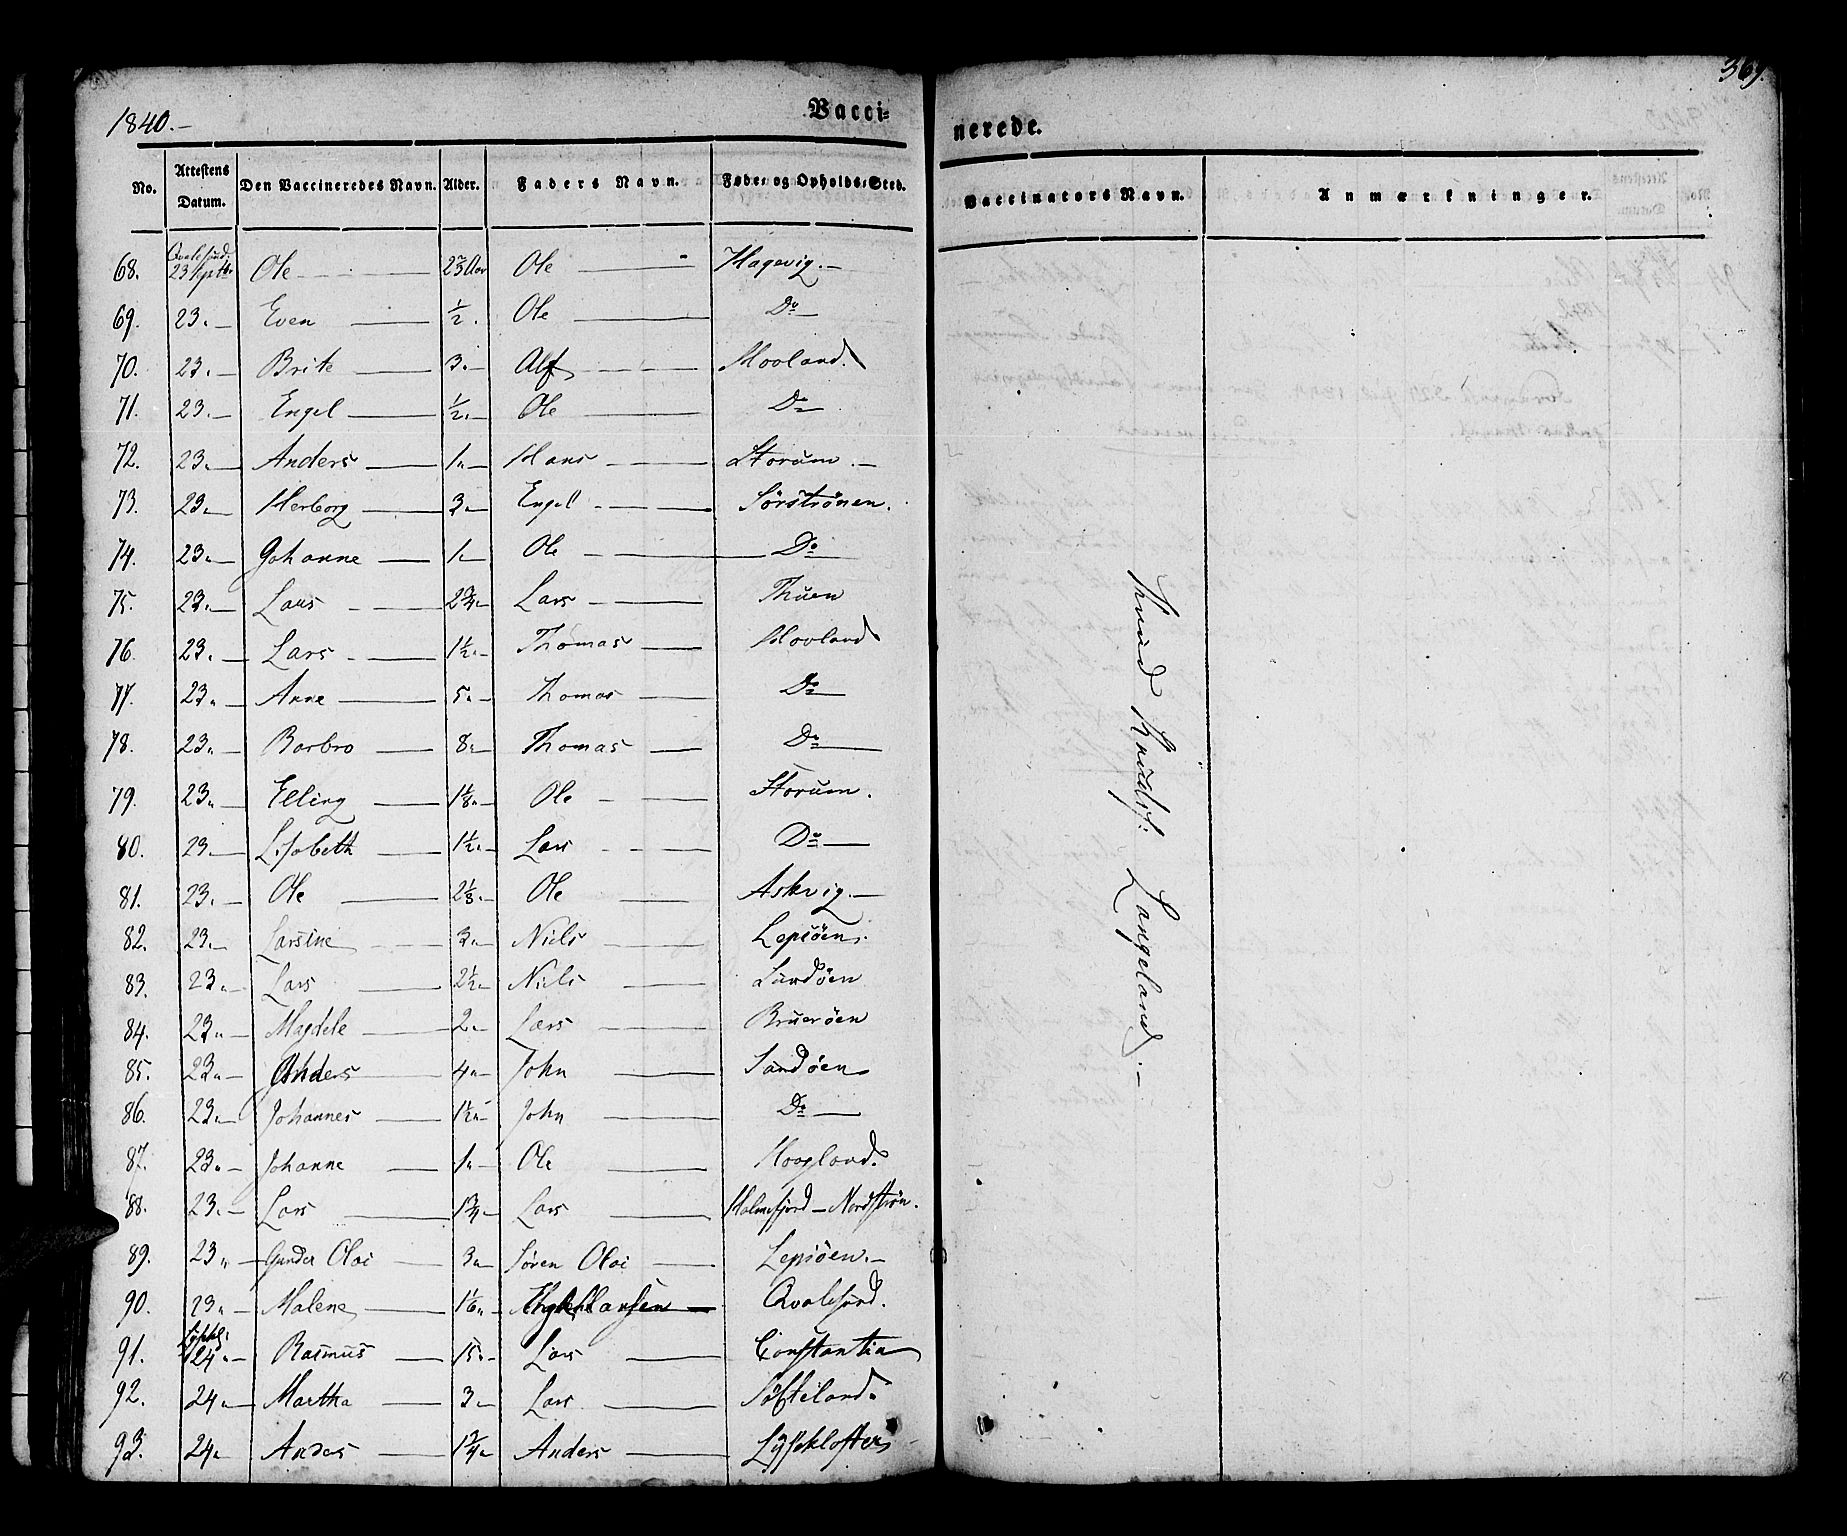 1840.–
Vacci-
nerede.
369.
No. Attestens Datum. Den Vaccineredes Navn. Alder. Faders Navn. Føde- og Opholds-Sted. Vaccinators Navn. Anmærkninger.
68. Qvalesund. 23 Septb. Ole 2⅔ Aar Ole Hagevig.–
69. 23. Even ½. Ole Do
70. 23. Brite 3. Alf Hovland.
71. 23. Engel ½. Ole Do
72. 23. Anders 1. Hans Storum.–
73. 23. Herborg 3. Engel Sörströnen.
74. 23. Johanne 1. Ole Do
75. 23. Lars 2¾. Lars Thuen
76. 23. Lars 1½. Thomas Hovland
77. 23. Anne 5. Thomas Do
78. 23. Barbro 8. Thomas Do
79. 23. Elling 1⅛. Ole Storum.
80. 23. Lisabeth 1½. Lars Do
81. 23. Ole 2⅓. Ole Askvig.–
82. 23. Larsine 3. Niels Lepsöen.
83. 23. Lars 2½. Niels Sandöen
84. 23. Magdele 2. Lars Brueröen
85. 23. Anders 4. John Sandöen
86. 23. Johannes 1½. John Do
87. 23. Johanne 1. Ole Hoogland.
88. 23. Lars 1¾. Lars Holmefjord – Nordströn.
89. 23. Gunder Olai 3. Sören Olai Lepsöen.–
90. 23. Malene 1⅙. Hansen Qvalesund.
91. 24. Rasmus 15. Lars Constantia
92. 24. Martha 3. Lars Söfteland.
93. 24. Andes 1¾. Anders Lysekloster
Knud Knuds: Langeland.–